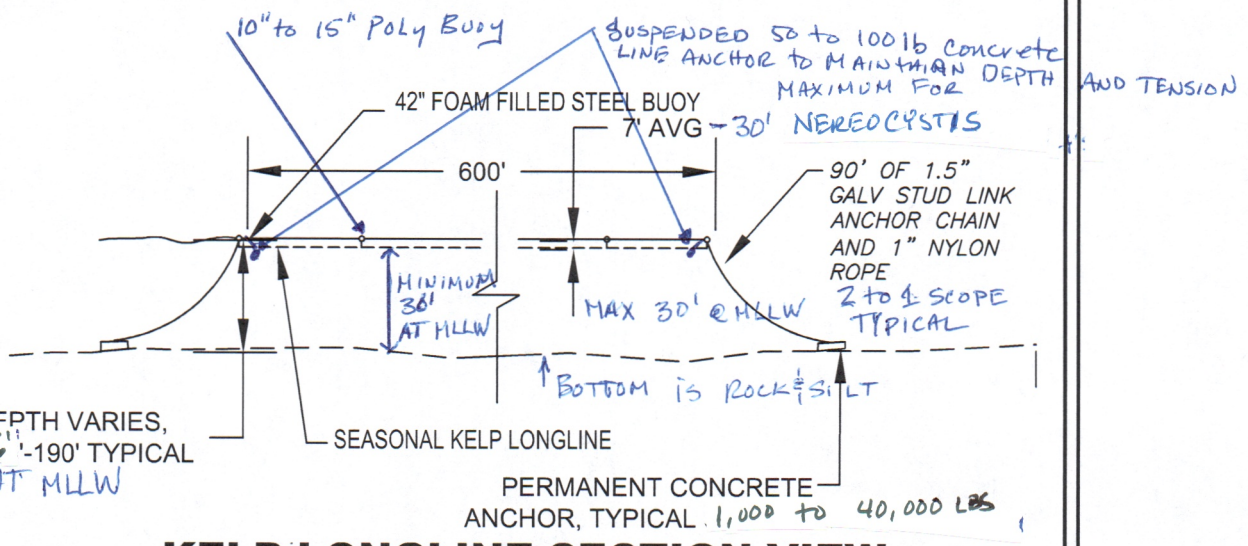 10" to 15" Poly Buoy
SUSPENDED 50 to 100 lb Concrete
LINE ANCHOR to MAINTAIAN DEPTH AND TENSION
MAXIMUM FOR
42" FOAM FILLED STEEL BUOY
7' AVG - 30' NEREOCYSTIS
600'
90' OF 1.5"
GALV STUD LINK
ANCHOR CHAIN
AND 1" NYLON
ROPE
2 to 1 SCOPE
TYPICAL
MINIMUM
30'
AT MLLW
MAX 30' @ MLLW
BOTTOM is ROCK & SILT
VARIES,
'-190' TYPICAL
MLLW
SEASONAL KELP LONGLINE
PERMANENT CONCRETE
ANCHOR, TYPICAL 1,000 to 40,000 LBS
KELP LONGLINE SECTION VIEW